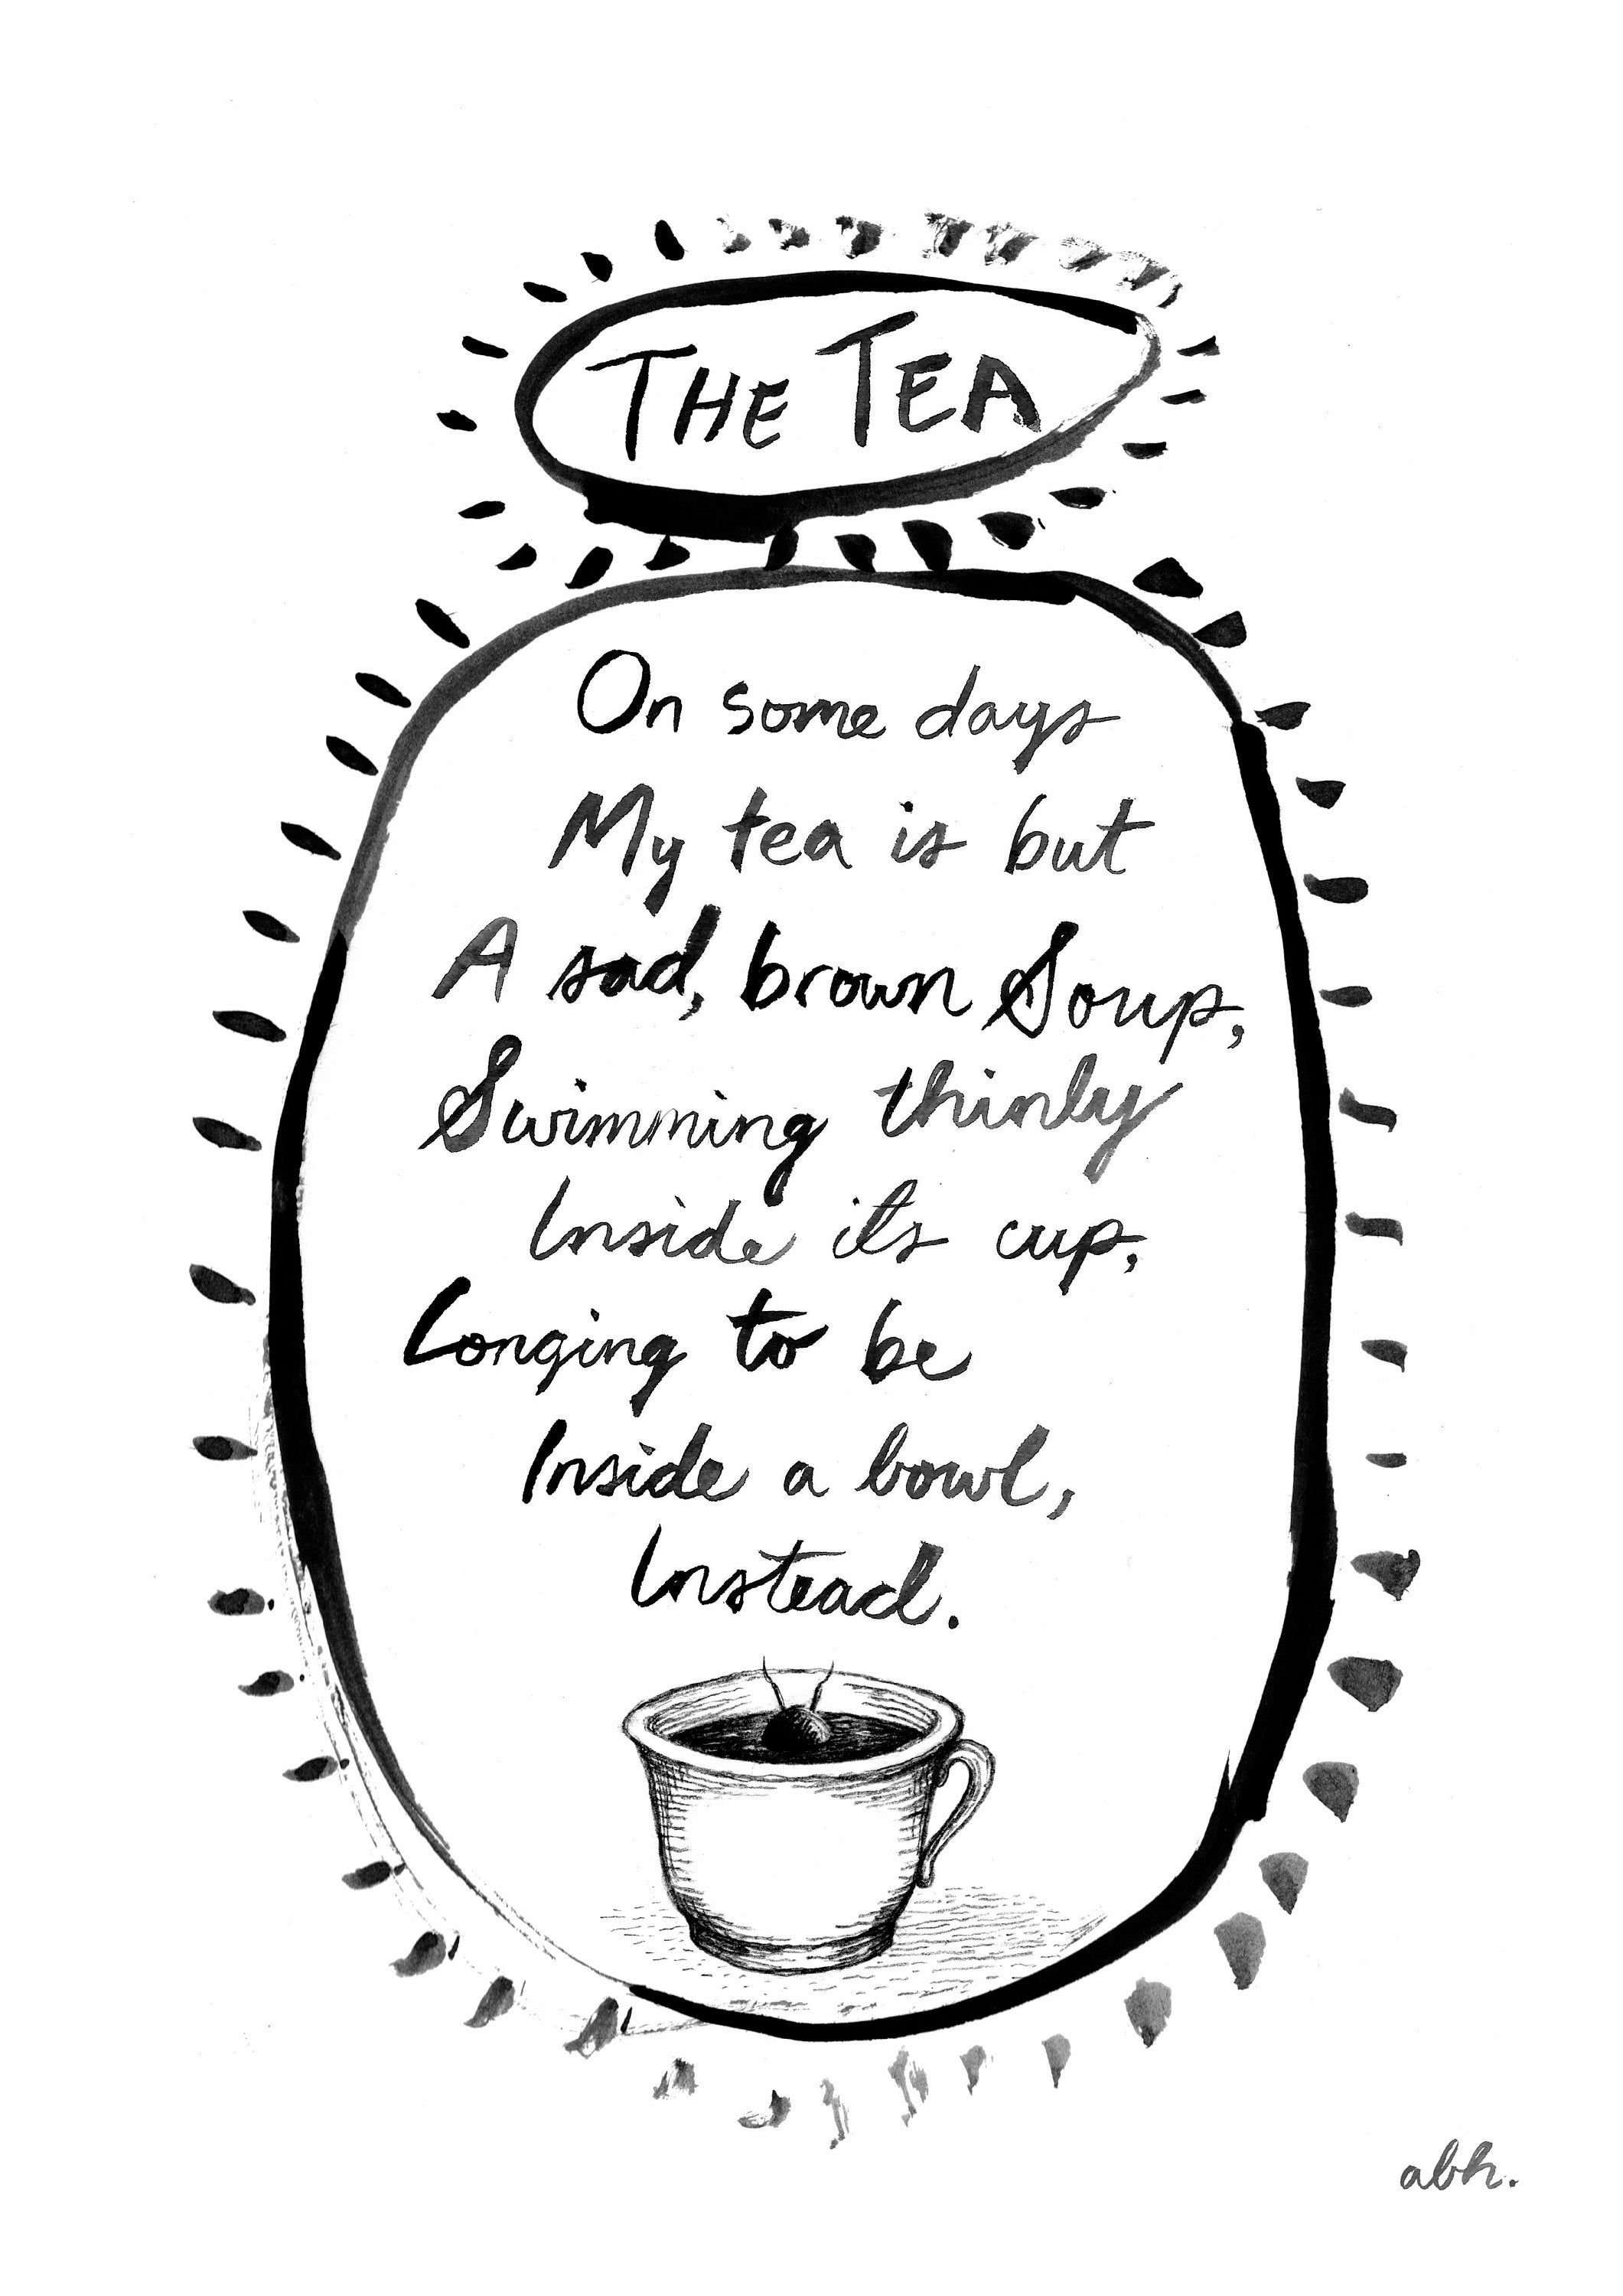 THE TEA
On some days
My tea is but
A sad, brown Soup,
Swimming thinly
Inside its cup,
Longing to be
Inside a bowl,
Instead.
abh.